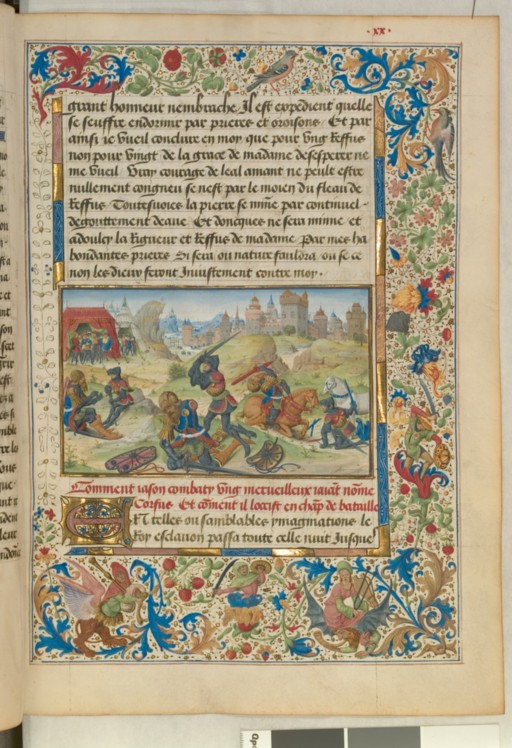 xx.
grant honneur nembrache Il est expedient quelle
se seuffre endormir par prieres et oroisons Et par
ainsi ie vueil conclure en moy que pour vng Reffus
non pour vingt de la grace de madame desesperer ne
me vueil Vray courage de leal amant ne peult estre
nullement congneu se nest par le moien du fleau de
Reffus Toutesuoies la pierre se mine par continuel
degouttement deaue Et doncques ne sera minne et
adoulcy la Rigueur et Reffus de madame Par mes ha
bondantes prieres Si sera ou nature fauldra ou se ce
non les dieux seront Iniustement contre moy
Comment iason combaty vng merueilleux iaiant nome
Corfus Et coment il loccist en chap de bataille
En telles ou samblables ymaginations le
Roy esclauon passa toute celle nuit Iusque